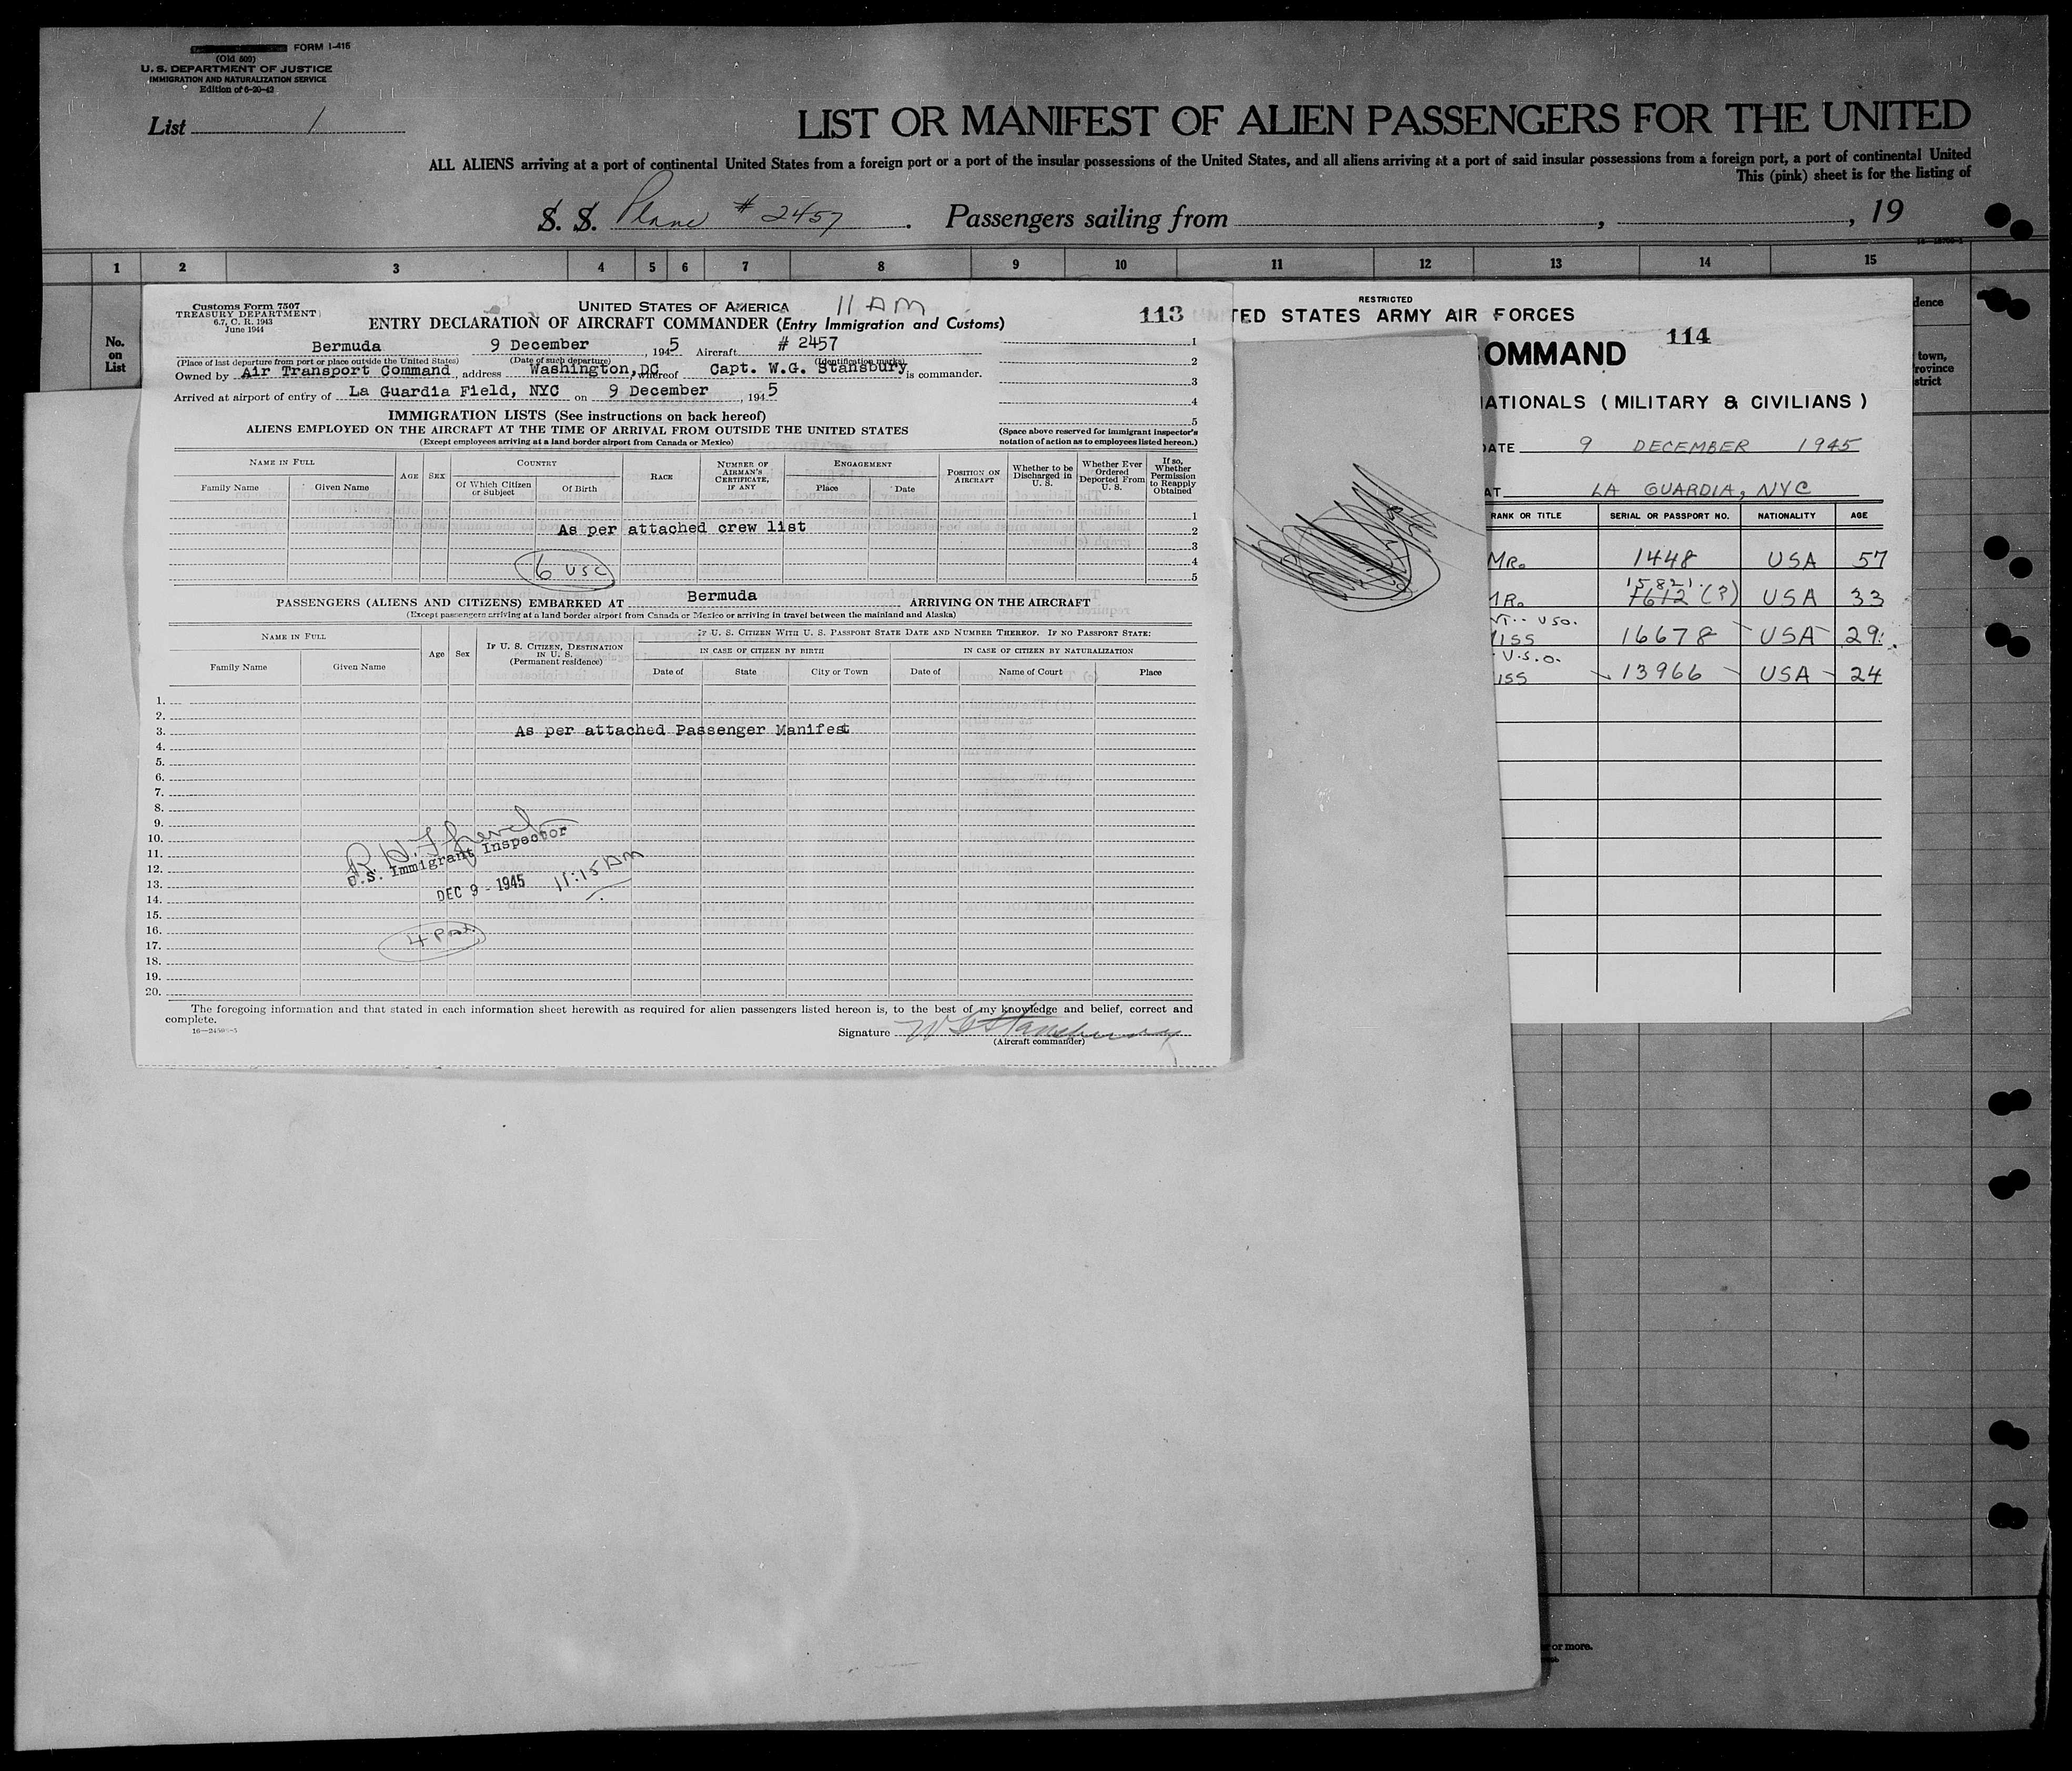 FORM I-415
(Old 609)
U. S. DEPARTMENT OF JUSTICE
IMMIGRATION AND NATURALIZATION SERVICE
Edition of 6-20-42
List 1
LIST OR MANIFEST OF ALIEN PASSENGERS FOR THE UNITED
ALL ALIENS arriving at a port of continental United States from a foreign port or a port of the insular possessions of the United States, and all aliens arriving at a port of said insular possessions from a foreign port, a port of continental United
This (pink) sheet is for the listing of
S. S. Plane # 2457. Passengers sailing from , , 19
1 2 3 4 5 6 7 8 9 10 11 12 13 14 15
No. on List
dence
town,
rovince
strict
Customs Form 7507
TREASURY DEPARTMENT
6.7, C. R. 1943
June 1944
UNITED STATES OF AMERICA 11 AM
113
ENTRY DECLARATION OF AIRCRAFT COMMANDER (Entry Immigration and Customs)
Bermuda 9 December, 1945 Aircraft # 2457
(Place of last departure from port or place outside the United States) (Date of such departure) (Identification marks)
Owned by Air Transport Command, address Washington, DC whereof Capt. W.G. Stansbury is commander.
Arrived at airport of entry of La Guardia Field, NYC on 9 December, 1945
1
2
3
4
5
IMMIGRATION LISTS (See instructions on back hereof)
ALIENS EMPLOYED ON THE AIRCRAFT AT THE TIME OF ARRIVAL FROM OUTSIDE THE UNITED STATES
(Except employees arriving at a land border airport from Canada or Mexico)
(Space above reserved for immigrant inspector's notation of action as to employees listed hereon.)
NAME IN FULL
Family Name Given Name
AGE SEX
COUNTRY
Of Which Citizen or Subject Of Birth
RACE
NUMBER OF AIRMAN'S CERTIFICATE, IF ANY
ENGAGEMENT
Place Date
POSITION ON AIRCRAFT
Whether to be Discharged in U. S.
Whether Ever Ordered Deported From U. S.
If so, Whether Permission to Reapply Obtained
1
As per attached crew list 2
3
6 USC 4
5
PASSENGERS (ALIENS AND CITIZENS) EMBARKED AT Bermuda ARRIVING ON THE AIRCRAFT
(Except passengers arriving at a land border airport from Canada or Mexico or arriving in travel between the mainland and Alaska)
NAME IN FULL
Family Name Given Name
Age Sex
IF U. S. CITIZEN, DESTINATION IN U. S. (Permanent residence)
IF U. S. CITIZEN WITH U. S. PASSPORT STATE DATE AND NUMBER THEREOF. IF NO PASSPORT STATE:
IN CASE OF CITIZEN BY BIRTH IN CASE OF CITIZEN BY NATURALIZATION
Date of State City or Town Date of Name of Court Place
1.
2.
3. As per attached Passenger Manifest
4.
5.
6.
7.
8.
9.
10.
11.
12.
13.
14.
15.
16.
17.
18.
19.
20.
U.S. Immigrant Inspector
DEC 9 - 1945 11:15 AM
4 Pas.
The foregoing information and that stated in each information sheet herewith as required for alien passengers listed hereon is, to the best of my knowledge and belief, correct and complete.
Signature W G Stansbury
(Aircraft commander)
RESTRICTED
TED STATES ARMY AIR FORCES
114
OMMAND
ATIONALS (MILITARY & CIVILIANS)
DATE 9 DECEMBER 1945
AT LA GUARDIA, NYC
RANK OR TITLE SERIAL OR PASSPORT NO. NATIONALITY AGE
MR. 1448 USA 57
15821
MR. 7612 (?) USA 33
USO.
MISS 16678 USA 29
U.S.O.
ISS 13966 USA 24
or more.